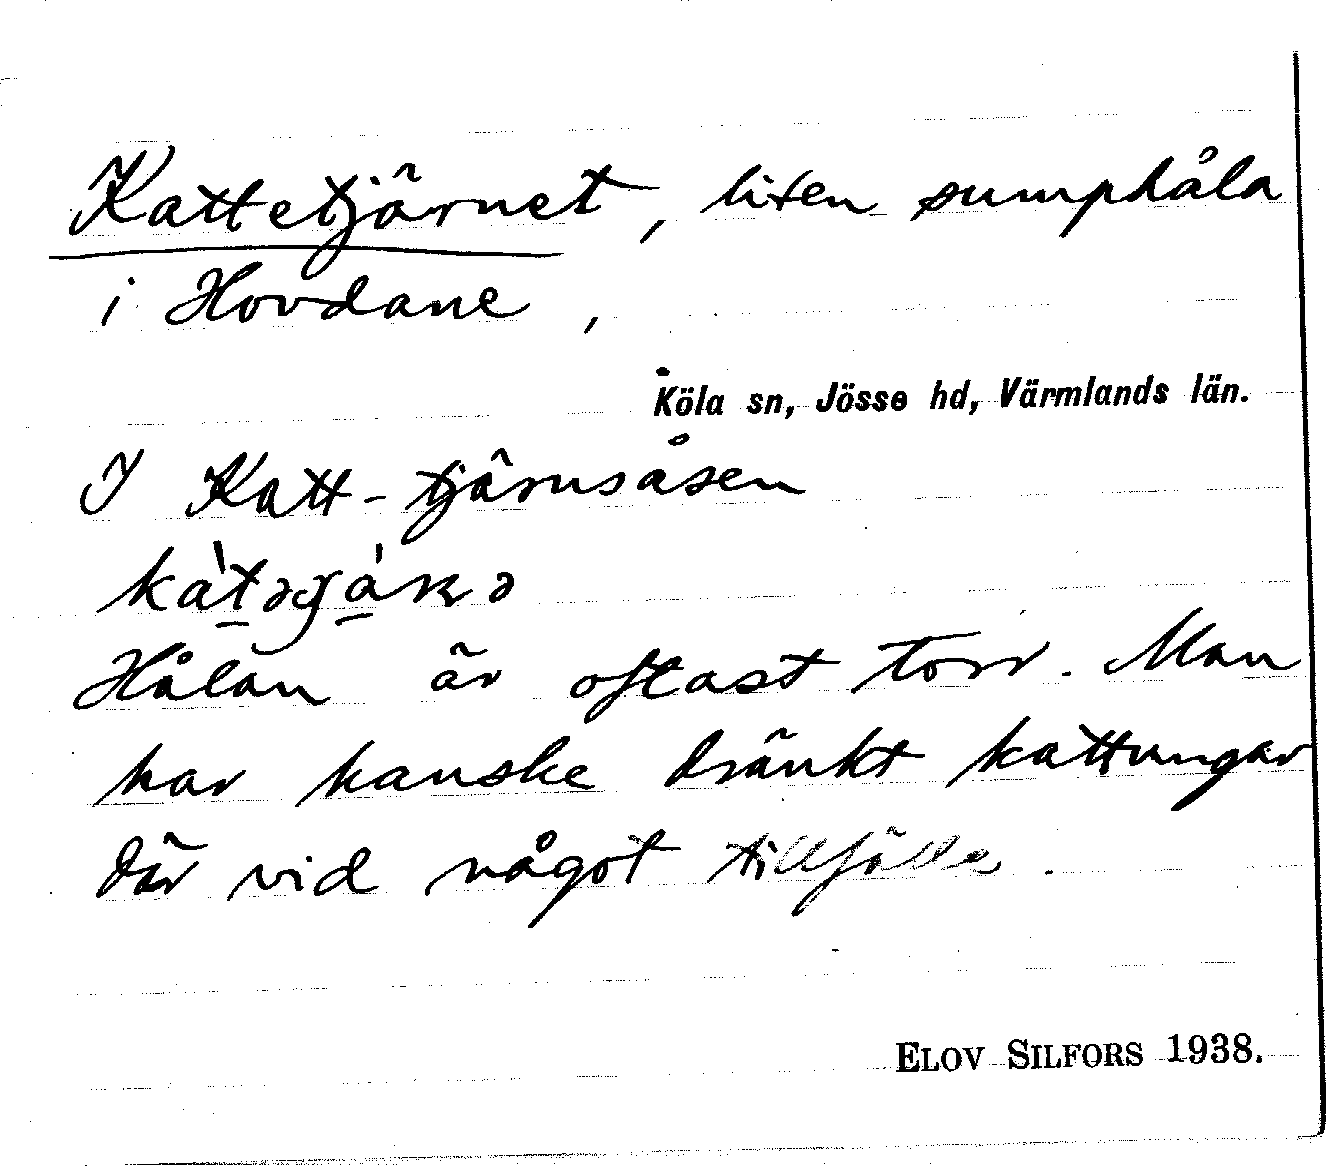 Kattetjärnet, liten sumphåla
i Hovdane,
Köla sn, Jösse hd, Värmlands län.
I Katt-tjärnsåsen
Hålan är oftast torr. Man
har kanske dränkt kattungar
där vid något tillfälle.
ELOV SILFORS 1938.